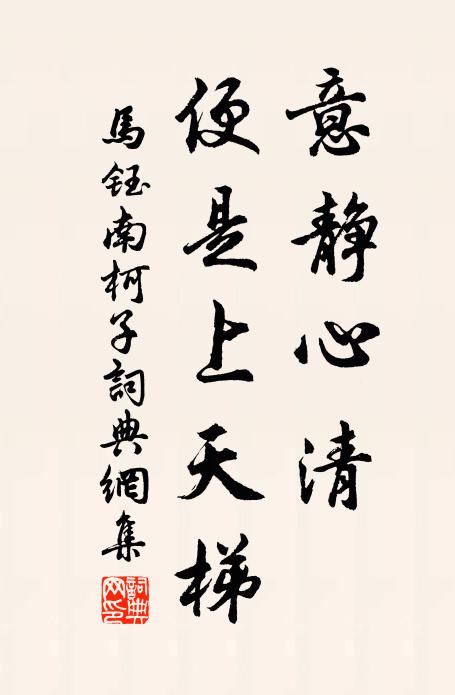 意静心清
便是上天梯
馬鈺南柯子詞典網集
詞典
网印